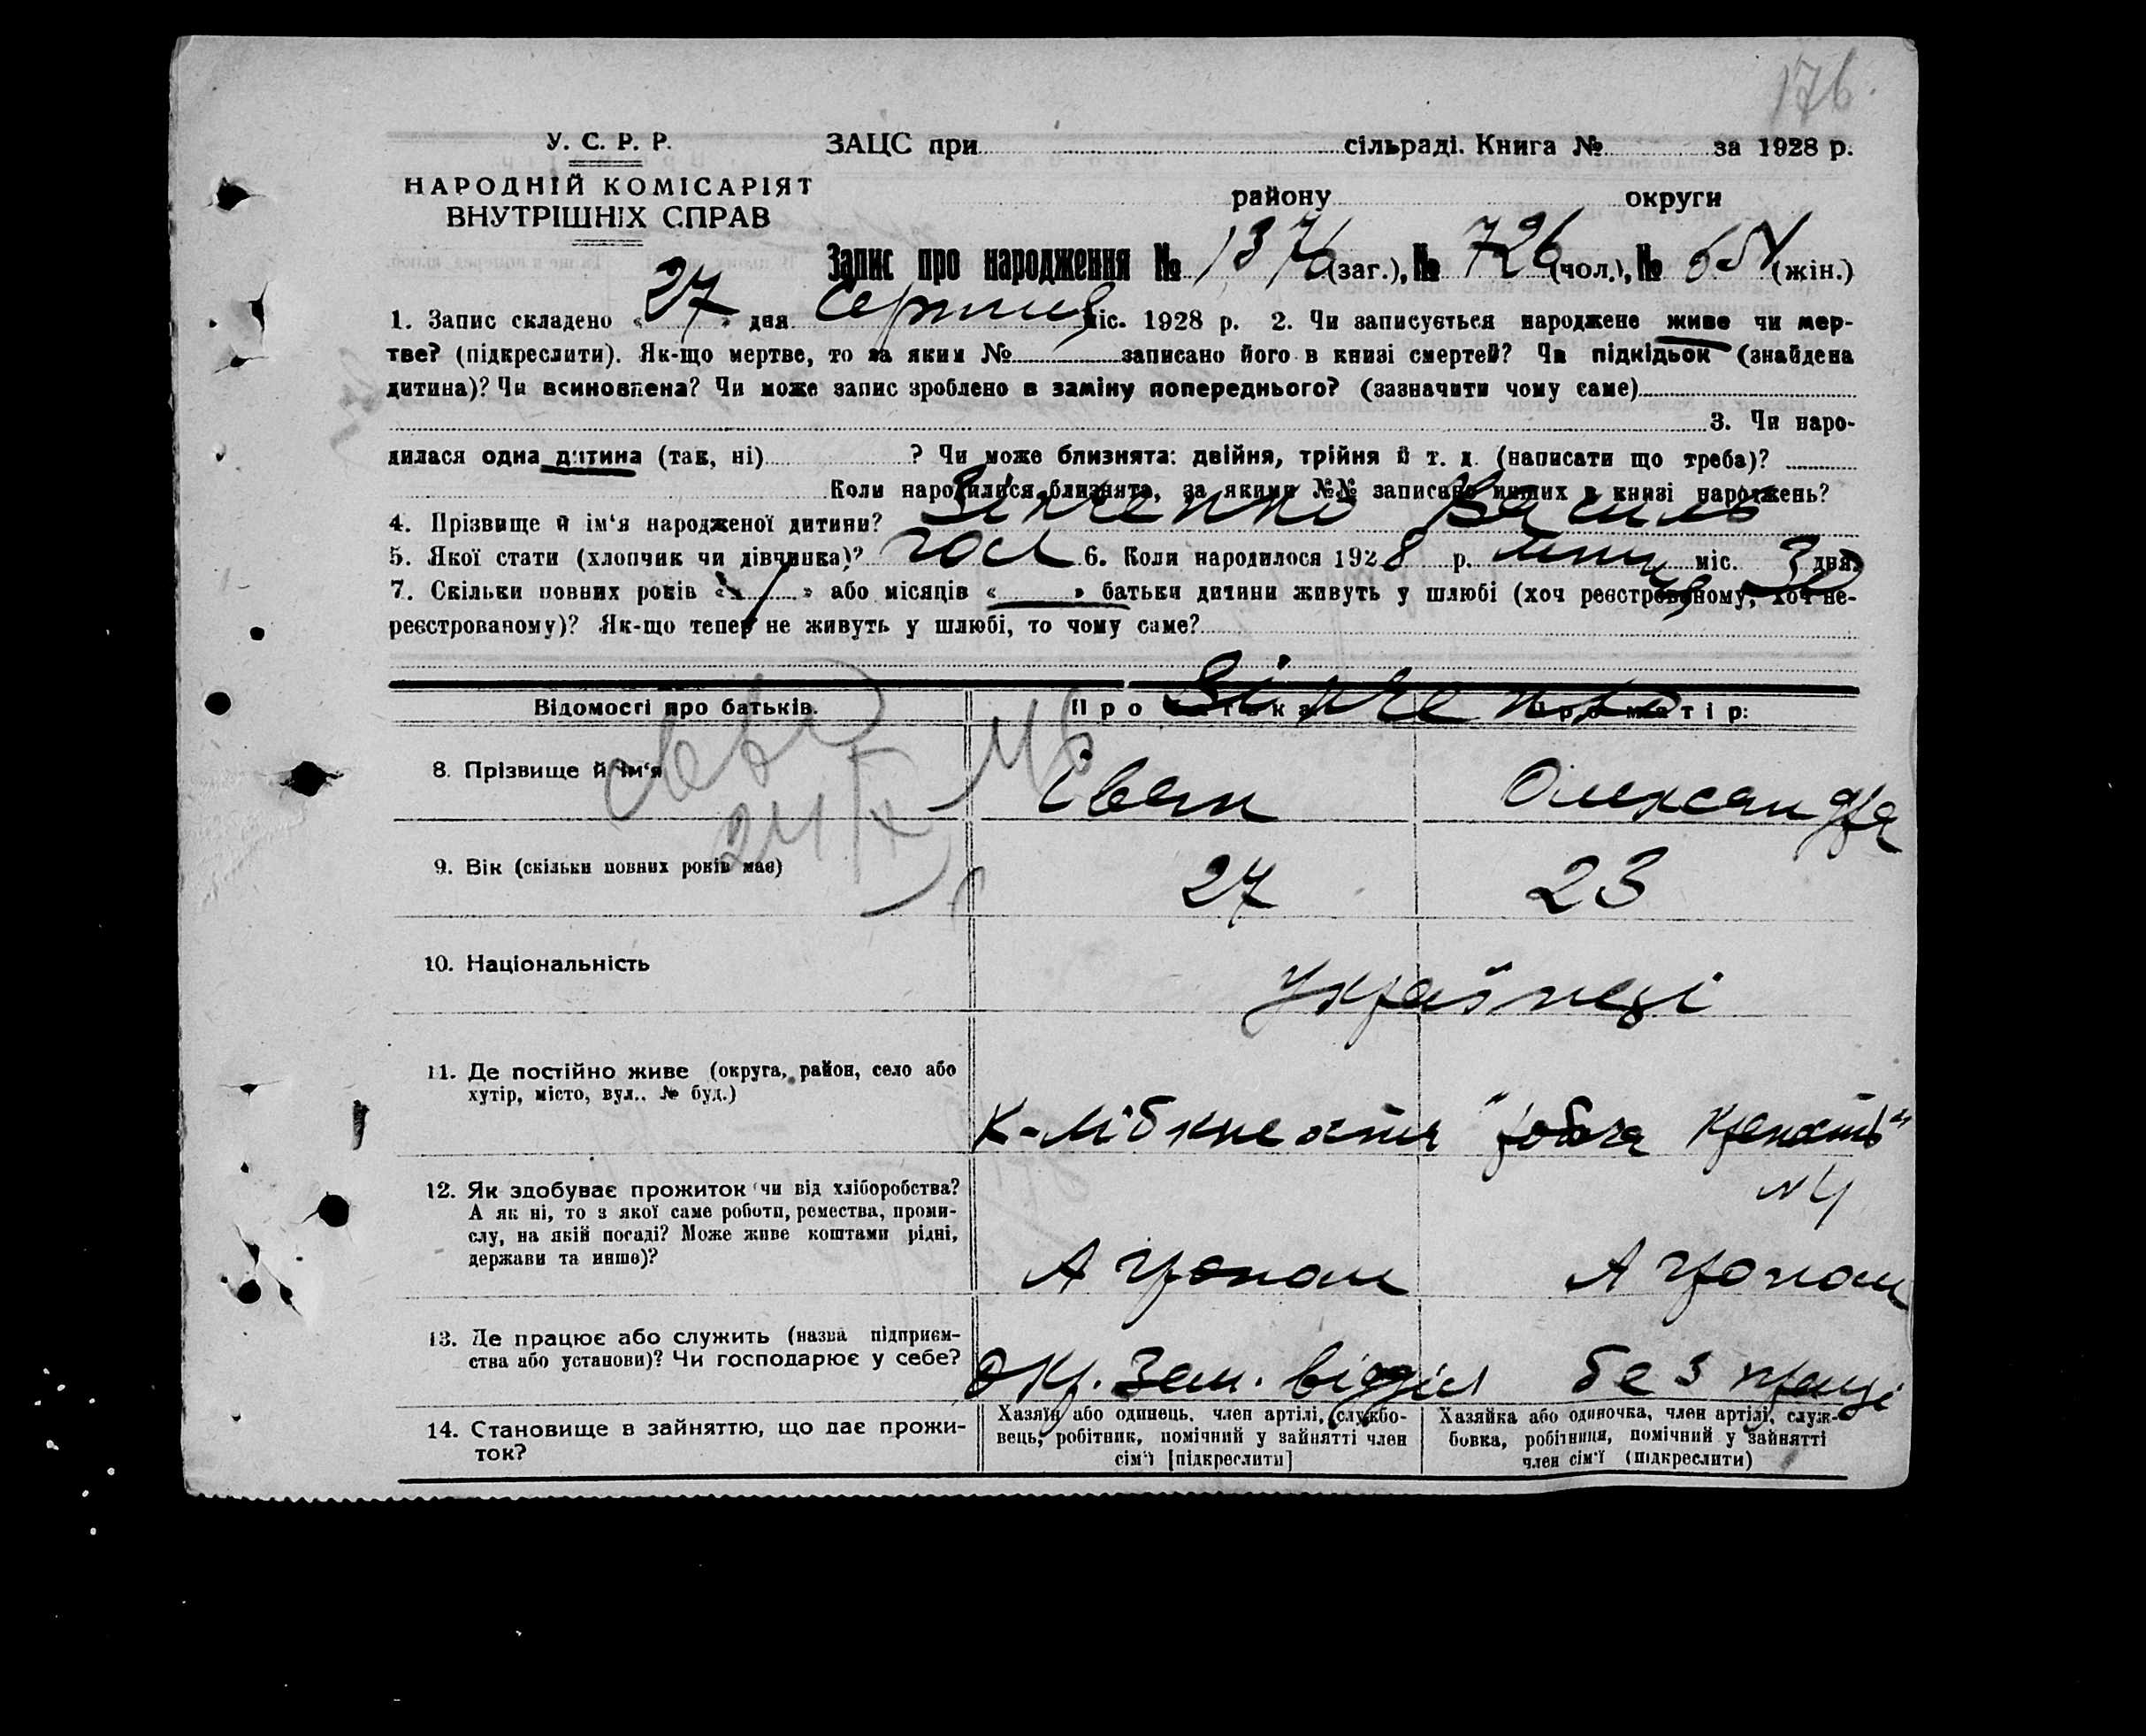 176.
У. С. Р. Р.
НАРОДНІЙ КОМІСАРІЯТ
ВНУТРІШНІХ СПРАВ
ЗАЦС при сільраді. Книга № за 1928 р.
району округи
Запис про народження № 1376 (заг.), № 726 (чол.), № 654 (жін.)
1. Запис складено « 27 » дня Серпня міс. 1928 р. 2. Чи записується народжене живе чи мер-
тве? (підкреслити). Як-що мертве, то за яким № записано його в книзі смертей? Чи підкідьок (знайдена
дитина)? Чи всиновлена? Чи може запис зроблено в заміну попереднього? (зазначити чому саме)
3. Чи наро-
дилася одна дитина (так, ні) ? Чи може близнята: двійня, трійня й т. д. (написати що треба)?
Коли народилися близнята, за якими №№ записано инших в книзі народжень?
4. Прізвище й ім‘я народженої дитини? Зінченко Василь
5. Якої стати (хлопчик чи дівчинка)? чол 6. Коли народилося 1928 р. липня міс. 30 дня.
7. Скільки повних років « 1 » або місяців « » батьки дитини живуть у шлюбі (хоч реєстрованому, хоч не-
реєстрованому)? Як-що тепер не живуть у шлюбі, то чому саме?
Відомості про батьків. Про батька: Про матір:
Зінченко
8. Прізвище й ім‘я Іван Олександра
24/X
9. Вік (скільки повних років має) 27 23
10. Національність Українці
11. Де постійно живе (округа, район, село або
хутір, місто, вул.. № буд.)
"робоча крепость"
№ 4
12. Як здобуває прожиток (чи від хліборобства?
А як ні, то з якої саме роботи, ремества, проми-
слу, на якій посаді? Може живе коштами рідні,
держави та инше)?
Агроном Агроном
13. Де працює або служить (назва підприєм-
ства або установи)? Чи господарює у себе?
Окр. Зем. відділ без праці
14. Становище в зайняттю, що дає прожи-
ток?
Хазяїн або одинець, член артілі, службо-
вець, робітник, помічний у зайнятті член
сім‘ї [підкреслити]
Хазяйка або одиночка, член артілі, служ-
бовка, робітниця, помічний у зайнятті
член сім‘ї (підкреслити)